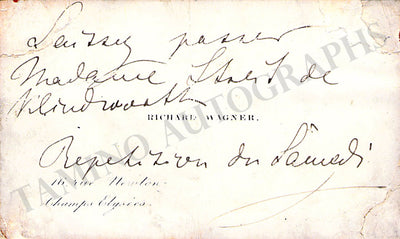 Laissez passer
Madame Street de
Klindworth
RICHARD WAGNER,
Répétition du Samedi
16, rue Newton
Champs Elysées.
TAMINO AUTOGRAPHS